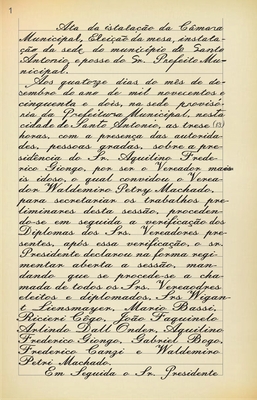 1
Ata da istalação da Câmara
Municipal, Eleição da mesa, instala-
ção da sede do município de Santo
Antonio, e posse do Sr. Prefeito Mu-
nicipal.
Aos quatorze dias do mês de de-
zembro do ano de mil novecentos e
cinquenta e dois, na sede provisó-
ria da Prefeitura Municipal, nesta
cidade de Santo Antonio, as trese (13)
horas, com a presença das autorida-
des, pessoas gradas, sobre a pre-
sidencia do Sr. Aquilino Frede-
rico Giongo, por ser o Vereador mais
is idoso, o qual convidou o Verea-
dor Waldemiro Petry Machado,
para secretariar os trabalhos pre-
liminares desta sessão, proceden-
do-se em seguida a verificação dos
Diplomas dos Srs. Vereadores pre-
sentes, após essa verificação, o sr.
Presidente declarou na forma regi-
mentar aberta a sessão, man-
dando que se procede-se a cha-
mada de todos os Srs. Vereaodres
eleitos e diplomados, Srs Wigan-
t Liensmayer, Mario Bassi,
Ricieri Côgo, João Faquinelo
Arlindo Dall'Onder, Aquilino
Frederico Giongo, Gabriel Bogo,
Frederico Canzi e Waldemiro
Petri Machado.
Em Seguida o Sr. Presidente